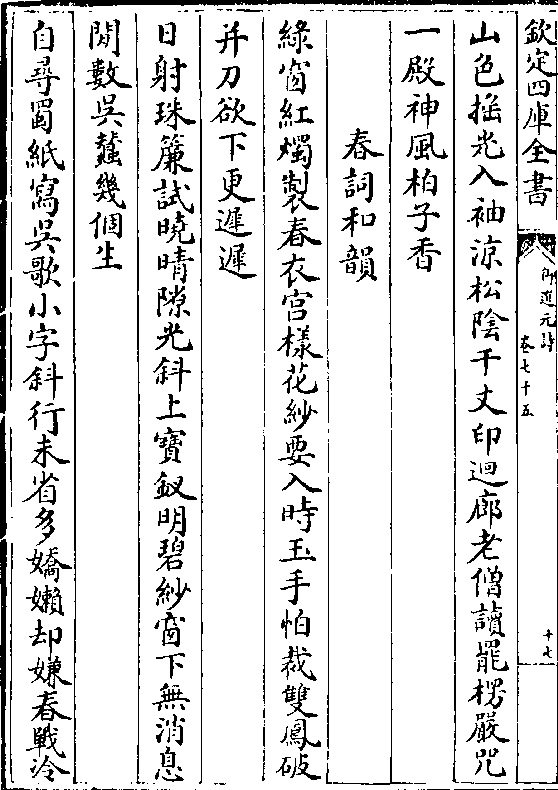 欽定四庫全書
御選元詩
卷七十五
十七
山色搖光入袖涼松陰千丈印迴廊老僧讀罷楞嚴咒
一殿神風柏子香
春詞和韻
綠窗紅燭製春衣宮樣花紗要入時玉手怕裁雙鳳破
并刀欲下更遲遲
日射珠簾試曉晴隙光斜上寶釵明碧紗窗下無消息
閒數吳蠶幾個生
自尋蜀紙寫吳歌小字斜行未省多嬌嬾却嫌春戰冷